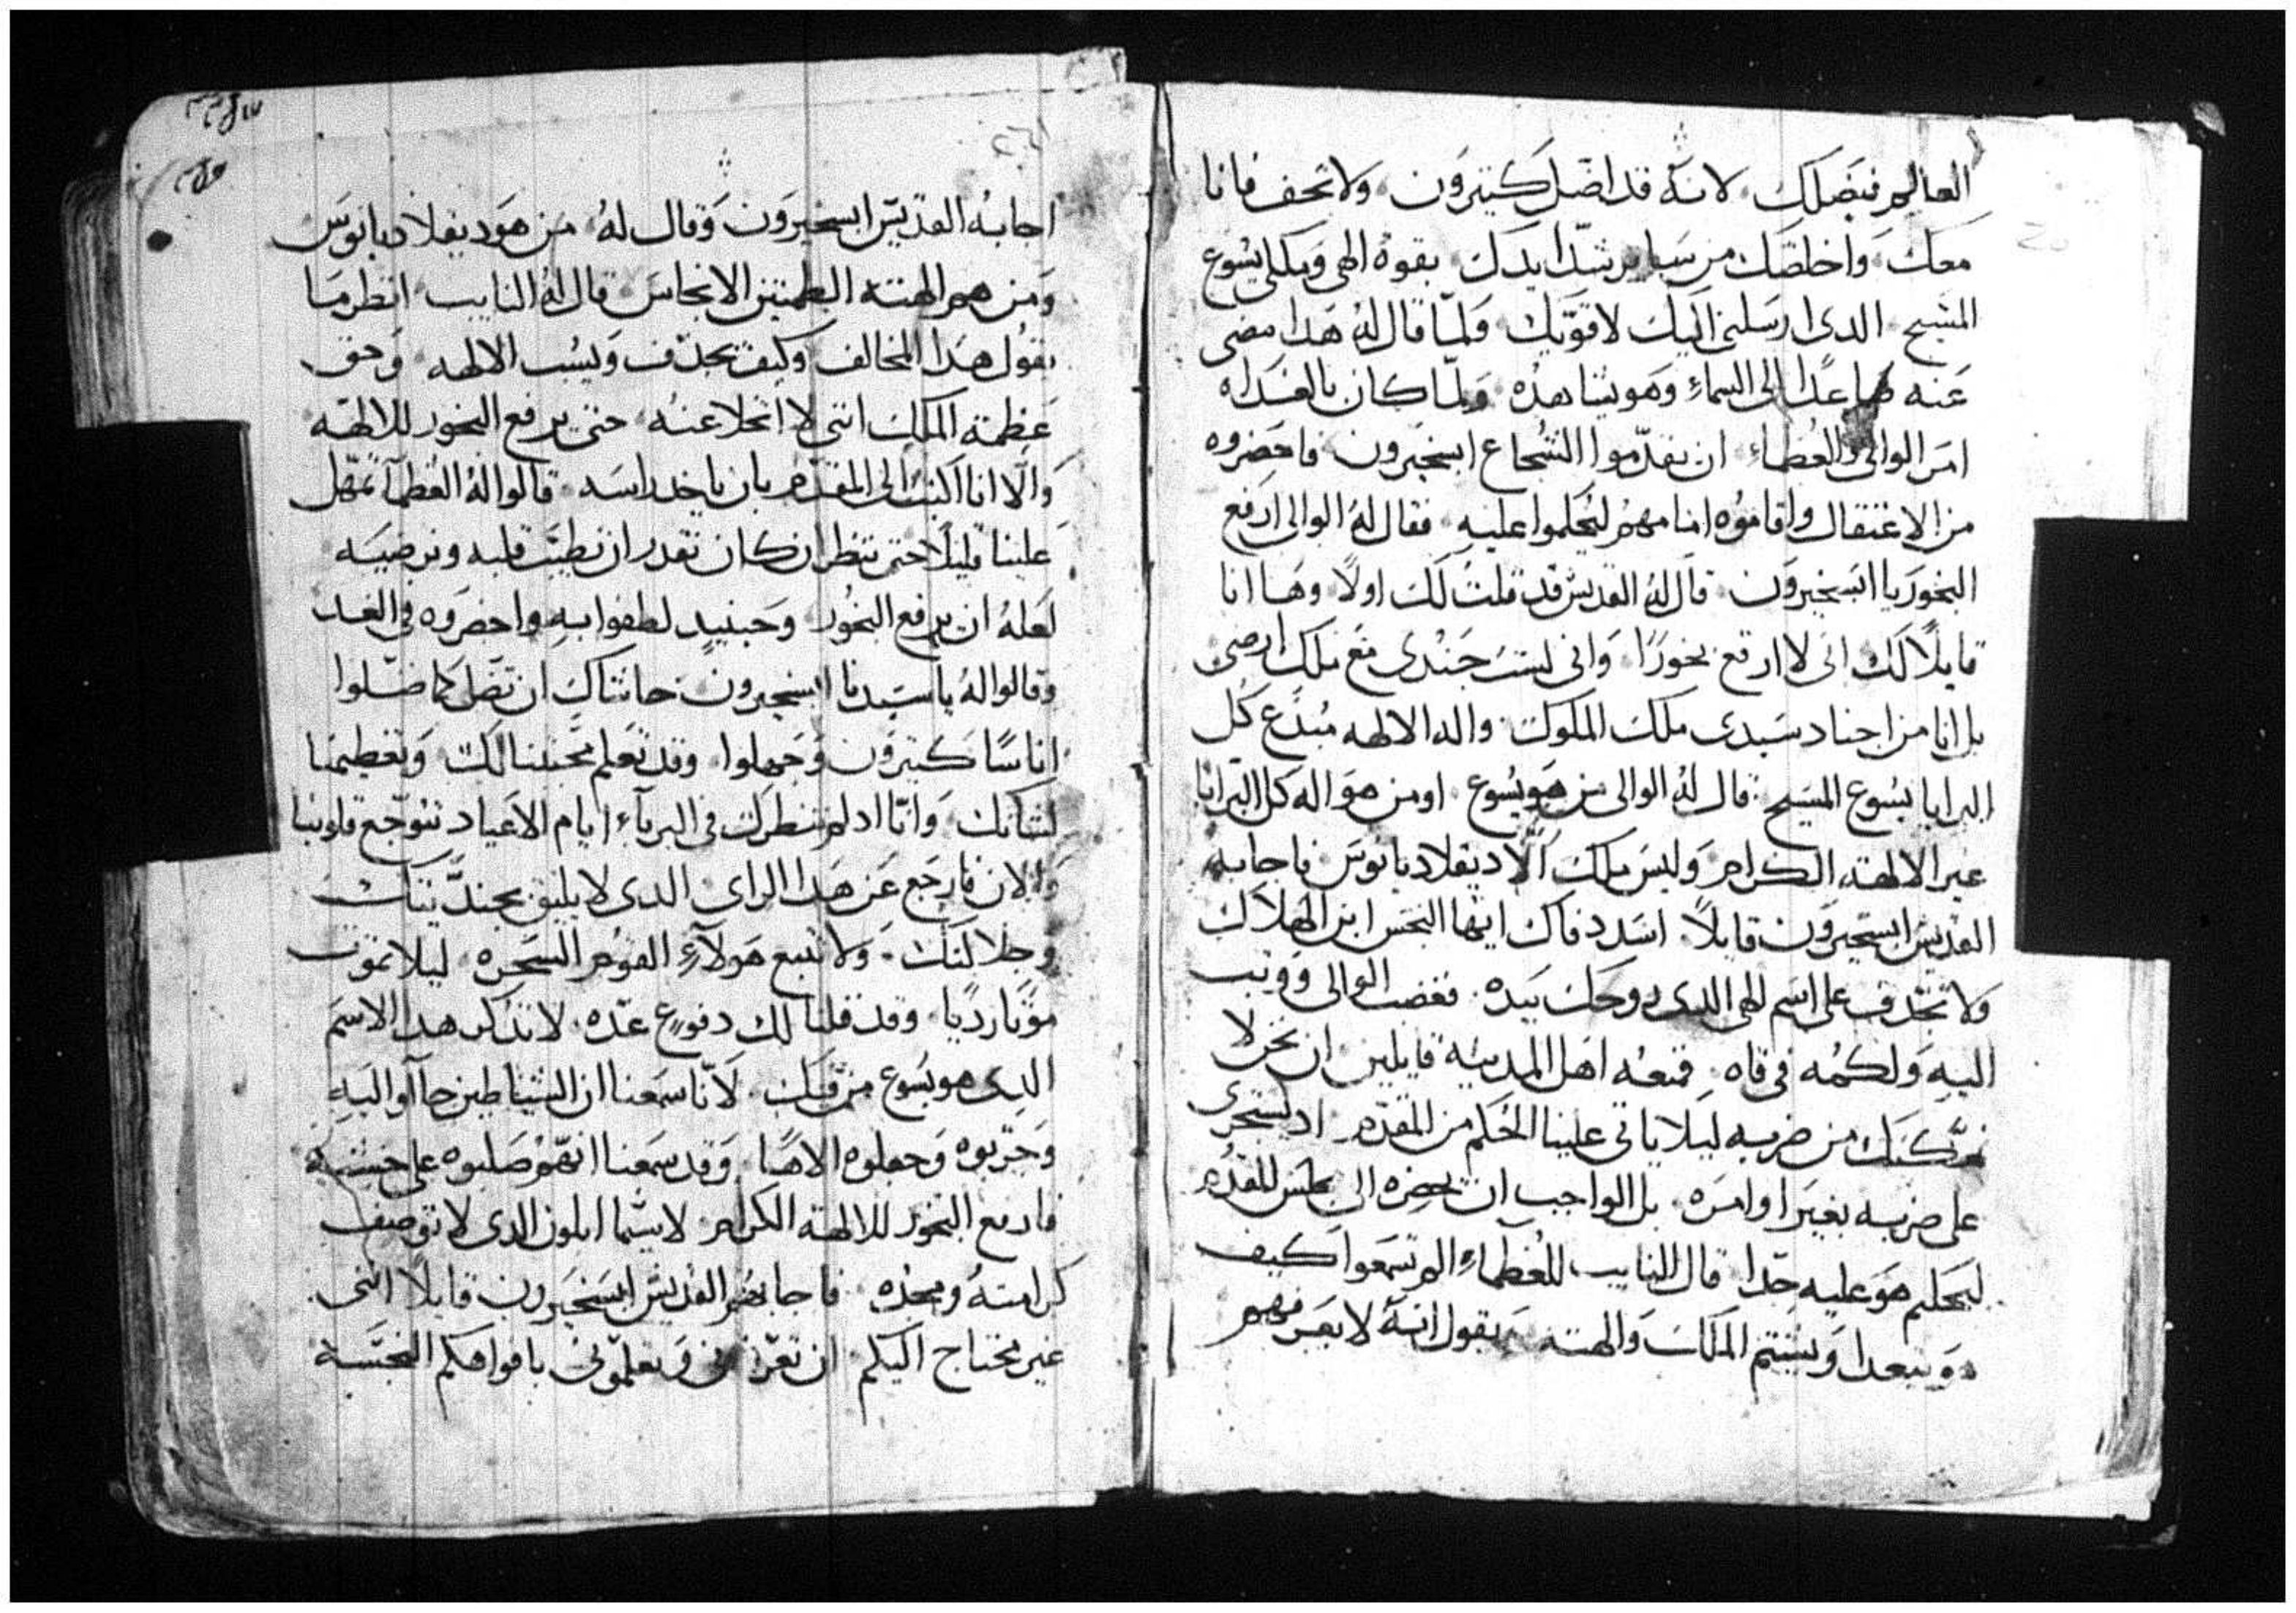 العالم فيضلك لانه قد اضل كتيرون ولا تخف فانا
معك واخلصك من ساير شدايدك بقوة الهي وملكي يسوع
المسيح الدى ارسلنى اليك لاقويك ولما قال له هدا مضى
عنه صاعدا الى السماء وهو يشاهده ولما كان بالغداه
امر الوالى والعظماء ان يقدموا الشجاع ابسخيرون فاحضروه
من الاعتقال واقاموه امامهم ليحكموا عليه فقال له الوالى ارفع
البخور يا ابسخيرون قال له القديس قد قلت لك اولا وها انا
قايلا لك انى لا ارفع بخورا وانى لست جندى مع ملك ارضى
بل انا من اجناد سيدى ملك الملوك واله الالهه مبدع كل
البرايا يسوع المسيح قال له الوالى من هو يسوع او من هو اله كل البرايا
غير الالهة الكرام وليس ملك الا ديقلاديانوس فاجابه
القديس ابسخيرون قايلا اسدد فاك ايها النجس ابن الهلاك
ولا تجدف على اسم الهى الدى روحك بيده فغضب الوالى ووتب
اليه ولكمه فى فاه فمنعه اهل المدينة قايلين ان نحن لا
نمكنك من ضربه ليلا ياتى علينا الحكم من المقدم اد تستجرى
على ضربه بغير اوامره بل الواجب ان تحضره الى مجلس المقدم
ليحكم هو عليه جدا قال النايب للعظماء الم تسمعوا كيف
ويشتم الملك والهته ويقول انه لا يعرفهم
٢٦١
اجابه القديس ابسخيرون وقال له من هو ديقلاديانوس
ومن هم الهته الطمتين الانجاس قال له النايب انظر ما
يقول هدا المخالف وكيف يجدف ويسب الالهه وحق
عظمة الملك اننى لا اتخلا عنه حتى يرفع البخور للالهه
والا انا اكتب الى المقدم بان ياخد راسه قالوا له العظما تمهل
علينا قليلا حتى ننظر ان كان نقدر ان نطيب قلبه ونرضيه
لعله ان يرفع البخور وحينيد لطفوا به واحضروه فى الغد
وقالوا له يا سيدنا ابسخيرون حاشاك ان تضل كما ضلوا
اناسا كتيرون وجهلوا وقد تعلم محبتنا لك وتعظيمنا
لشانك وانا اد لم ننظرك فى البرباء ايام الاعياد تتوجع قلوبنا
والان فارجع عن هدا الراى الدى لا يليق بجنديتك
وجلالتك ولا تتبع هولاء القوم السحره ليلا تموت
موتا رديا وقد قلنا لك دفوع عده لا تدكر هدا الاسم
الدى هو يسوع من فمك لانا سمعنا ان الشياطين جاآوا اليه
وجربوه وجعلوه الاها وقد سمعنا انهم صلبوه على خشبة
فارفع البخور للالهة الكرام لا سيما ابلون الدى لا توصف
كرامته ومجده فاجابهم القديس ابسخيرون قايلا اننى
غير محتاج اليكم ان تعزونى وتعلمونى بافواهكم النجسة